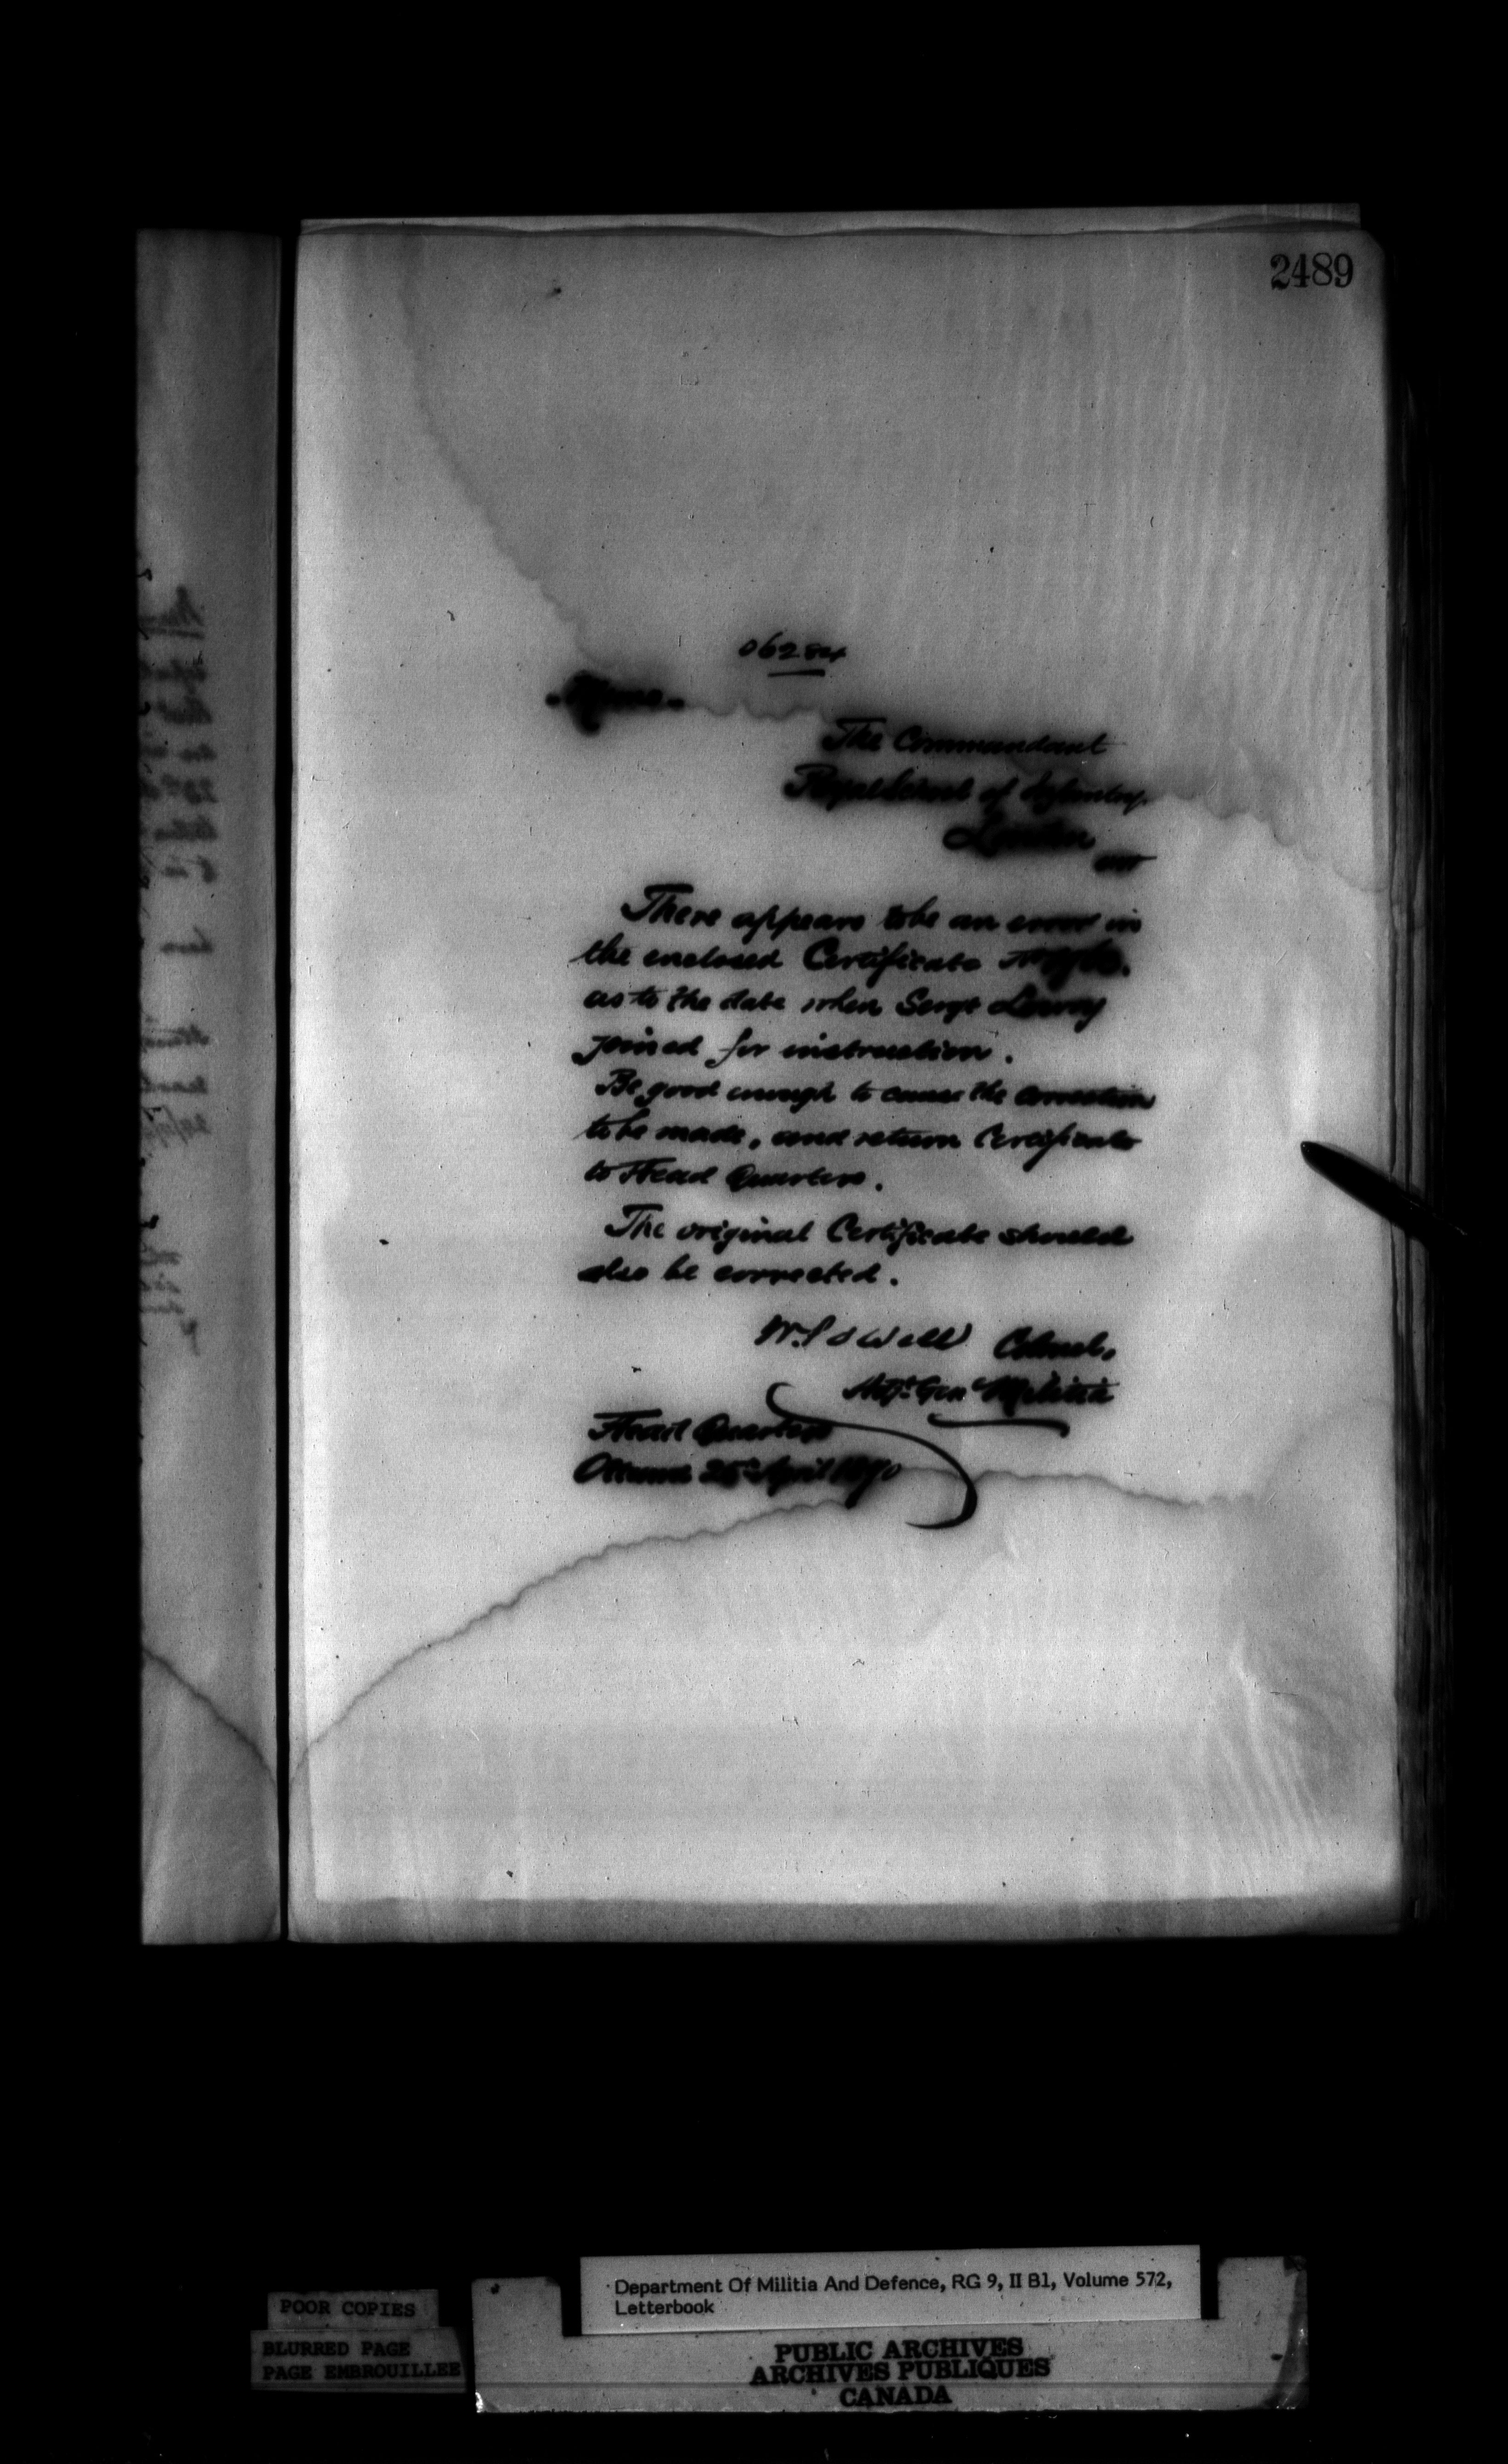 2489
The Commandant
Royal School of Infantry
London
Ont
There appears to be an error in
the enclosed Certificate
as to the date when Sergt
joined for instruction.
Be good enough to cause the correction
to be made, and return Certificate
to Head Quarters.
The original Certificate should
also be corrected.
W. Powell Colonel,
Adjt. Genl Militia
Head Quarters
Ottawa April 1890
Department Of Militia And Defence, RG 9, II B1, Volume 572,
Letterbook
POOR COPIES
BLURRED PAGE
PAGE EMBROUILLEE
PUBLIC ARCHIVES
ARCHIVES PUBLIQUES
CANADA